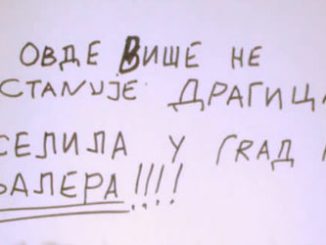 ОВДЕ ВИШЕ НЕ
СТАНУЈЕ ДРАГИЦА
СЕЛИЛА У ГRАД
ВАЛЕРА!!!!